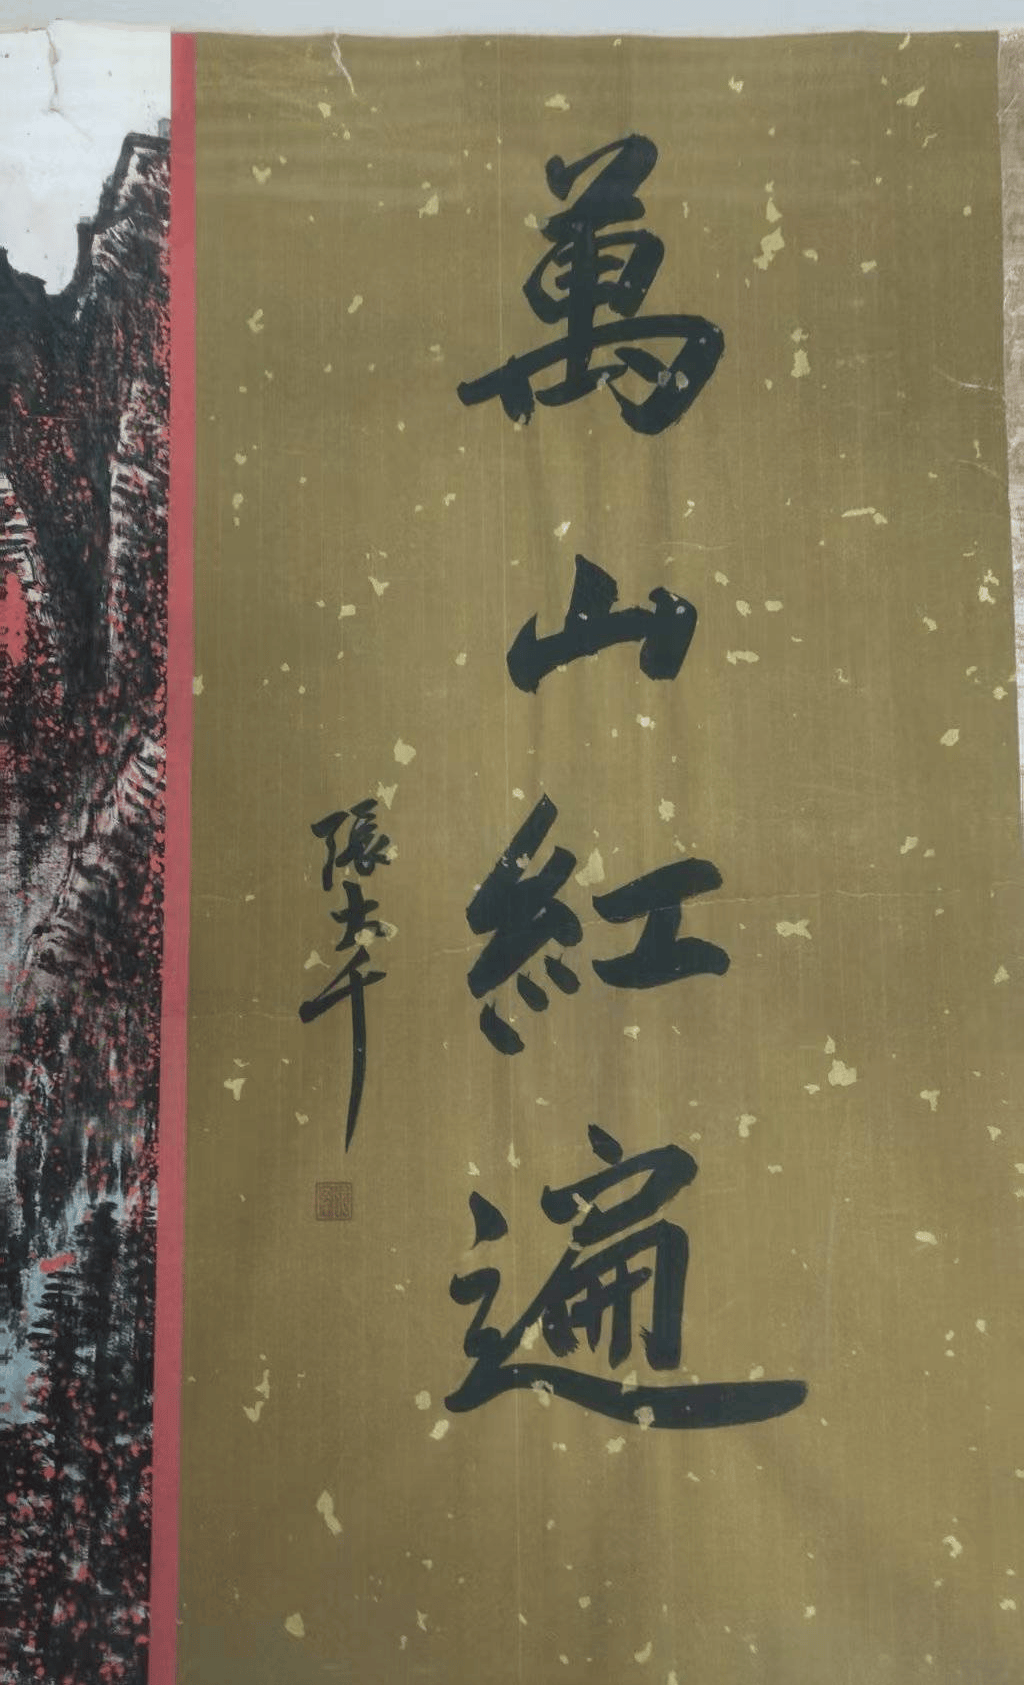 萬山紅遍
張大千